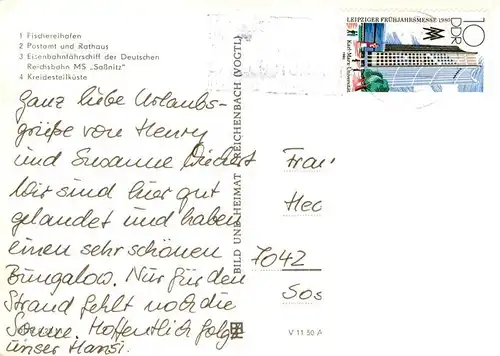 1 Fischereihafen
2 Postamt und Rathaus
3 Eisenbahnfährschiff der Deutschen
Reichsbahn MS „Saßnitz"
4 Kreidesteilküste
Ganz liebe Urlaubs-
grüße von Henry
und Susanne
Wir sind hier gut
gelandet und haben
einen sehr schönen
Bungalow. Nur für den
Strand fehlt noch die
Sonne. Hoffentlich folgt
unser Hansi.
BILD UND HEIMAT REICHENBACH (VOGTL)
LEIPZIGER FRÜHJAHRSMESSE 1980
Karl-Marx-Universität
10
DDR
Frau
Hec
7042
Sos
V 11 50 A